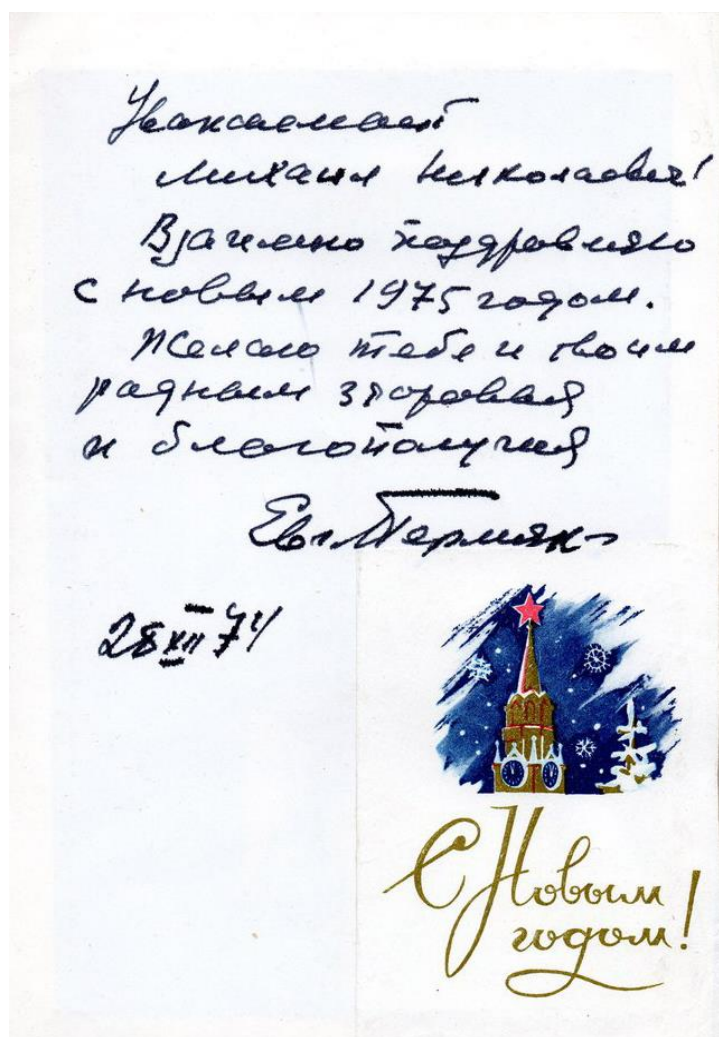 Уважаемый
Михаил Николаевич!
Взаимно поздравляю
с новым 1975 годом.
Желаю тебе и твоим
родным здоровья
и благополучия
Евг. Пермяк
28 XII 74
С Новым
годом!